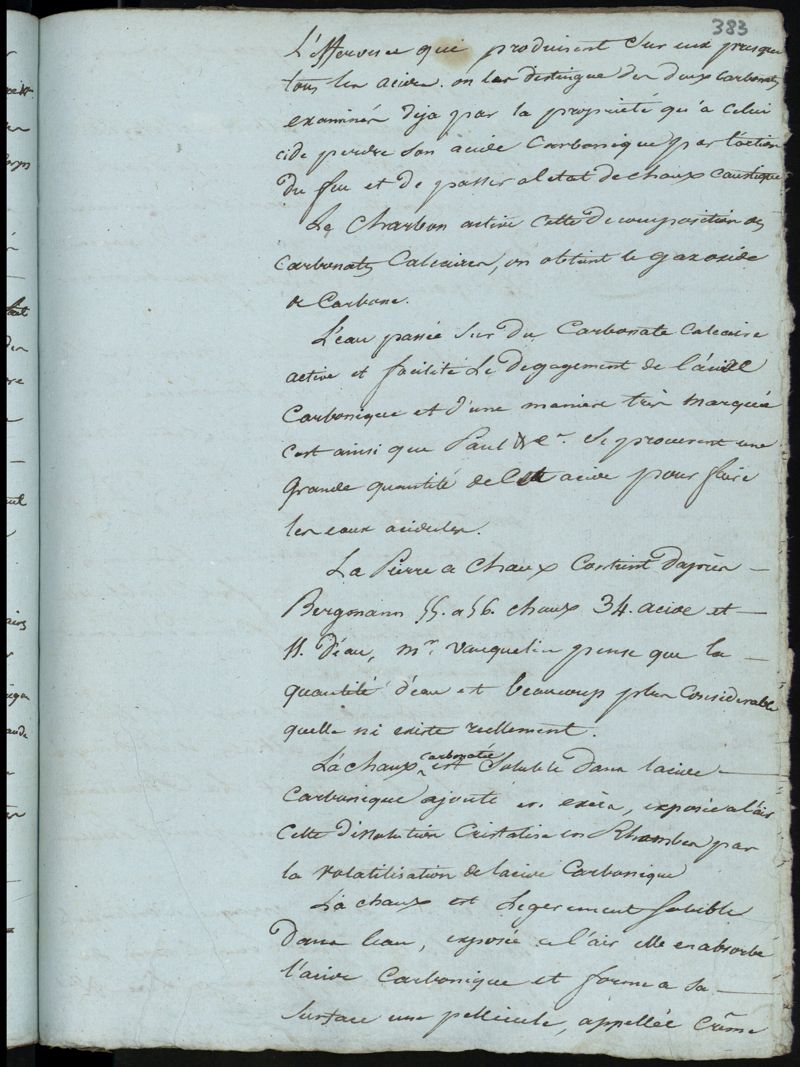 383
L'effervesce qui produisent Sur eux presque
tous les acides. on les distingue des deux carbonates
examinés deja par la proprieté qu'a celui
ci de perdre Son acide Carbonique par l'action
du feu et de passer a l'etat de chaux caustique
Le Charbon active cette Decomposition des
Carbonates Calcaires, on obtient le gaz oxide
de Carbone.
L'eau passée Sur du Carbonate Calcaire
active et facilite Le Degagement de l'acide
Carbonique et d'une maniere très marquée
c'est ainsi que Paul & Ce. Se procurent une
Grande quantité de Cet acide pour faire
les eaux acidules.
La Pierre a Chaux Contient D'après –
Bergmann 55. a 56. chaux 34. acide et –
11. D'eau, mr. Vauquelin pense que la –
quantité d'eau est beaucoup plus Cosiderable
quelle n'i existe reellement.
La Chaux carbonatée est Soluble dans lacide –
Carbonique ajouté en excès, exposée a l'air
Cette dissolution Cristalise en Rhombes par
la volatilisation de lacide Carbonique
La chaux est Legerement Soluble
Dans leau, exposée a l'air elle en absorbe
l'acide Carbonique et forme a Sa –
Surface une pellicule, appellée Crême